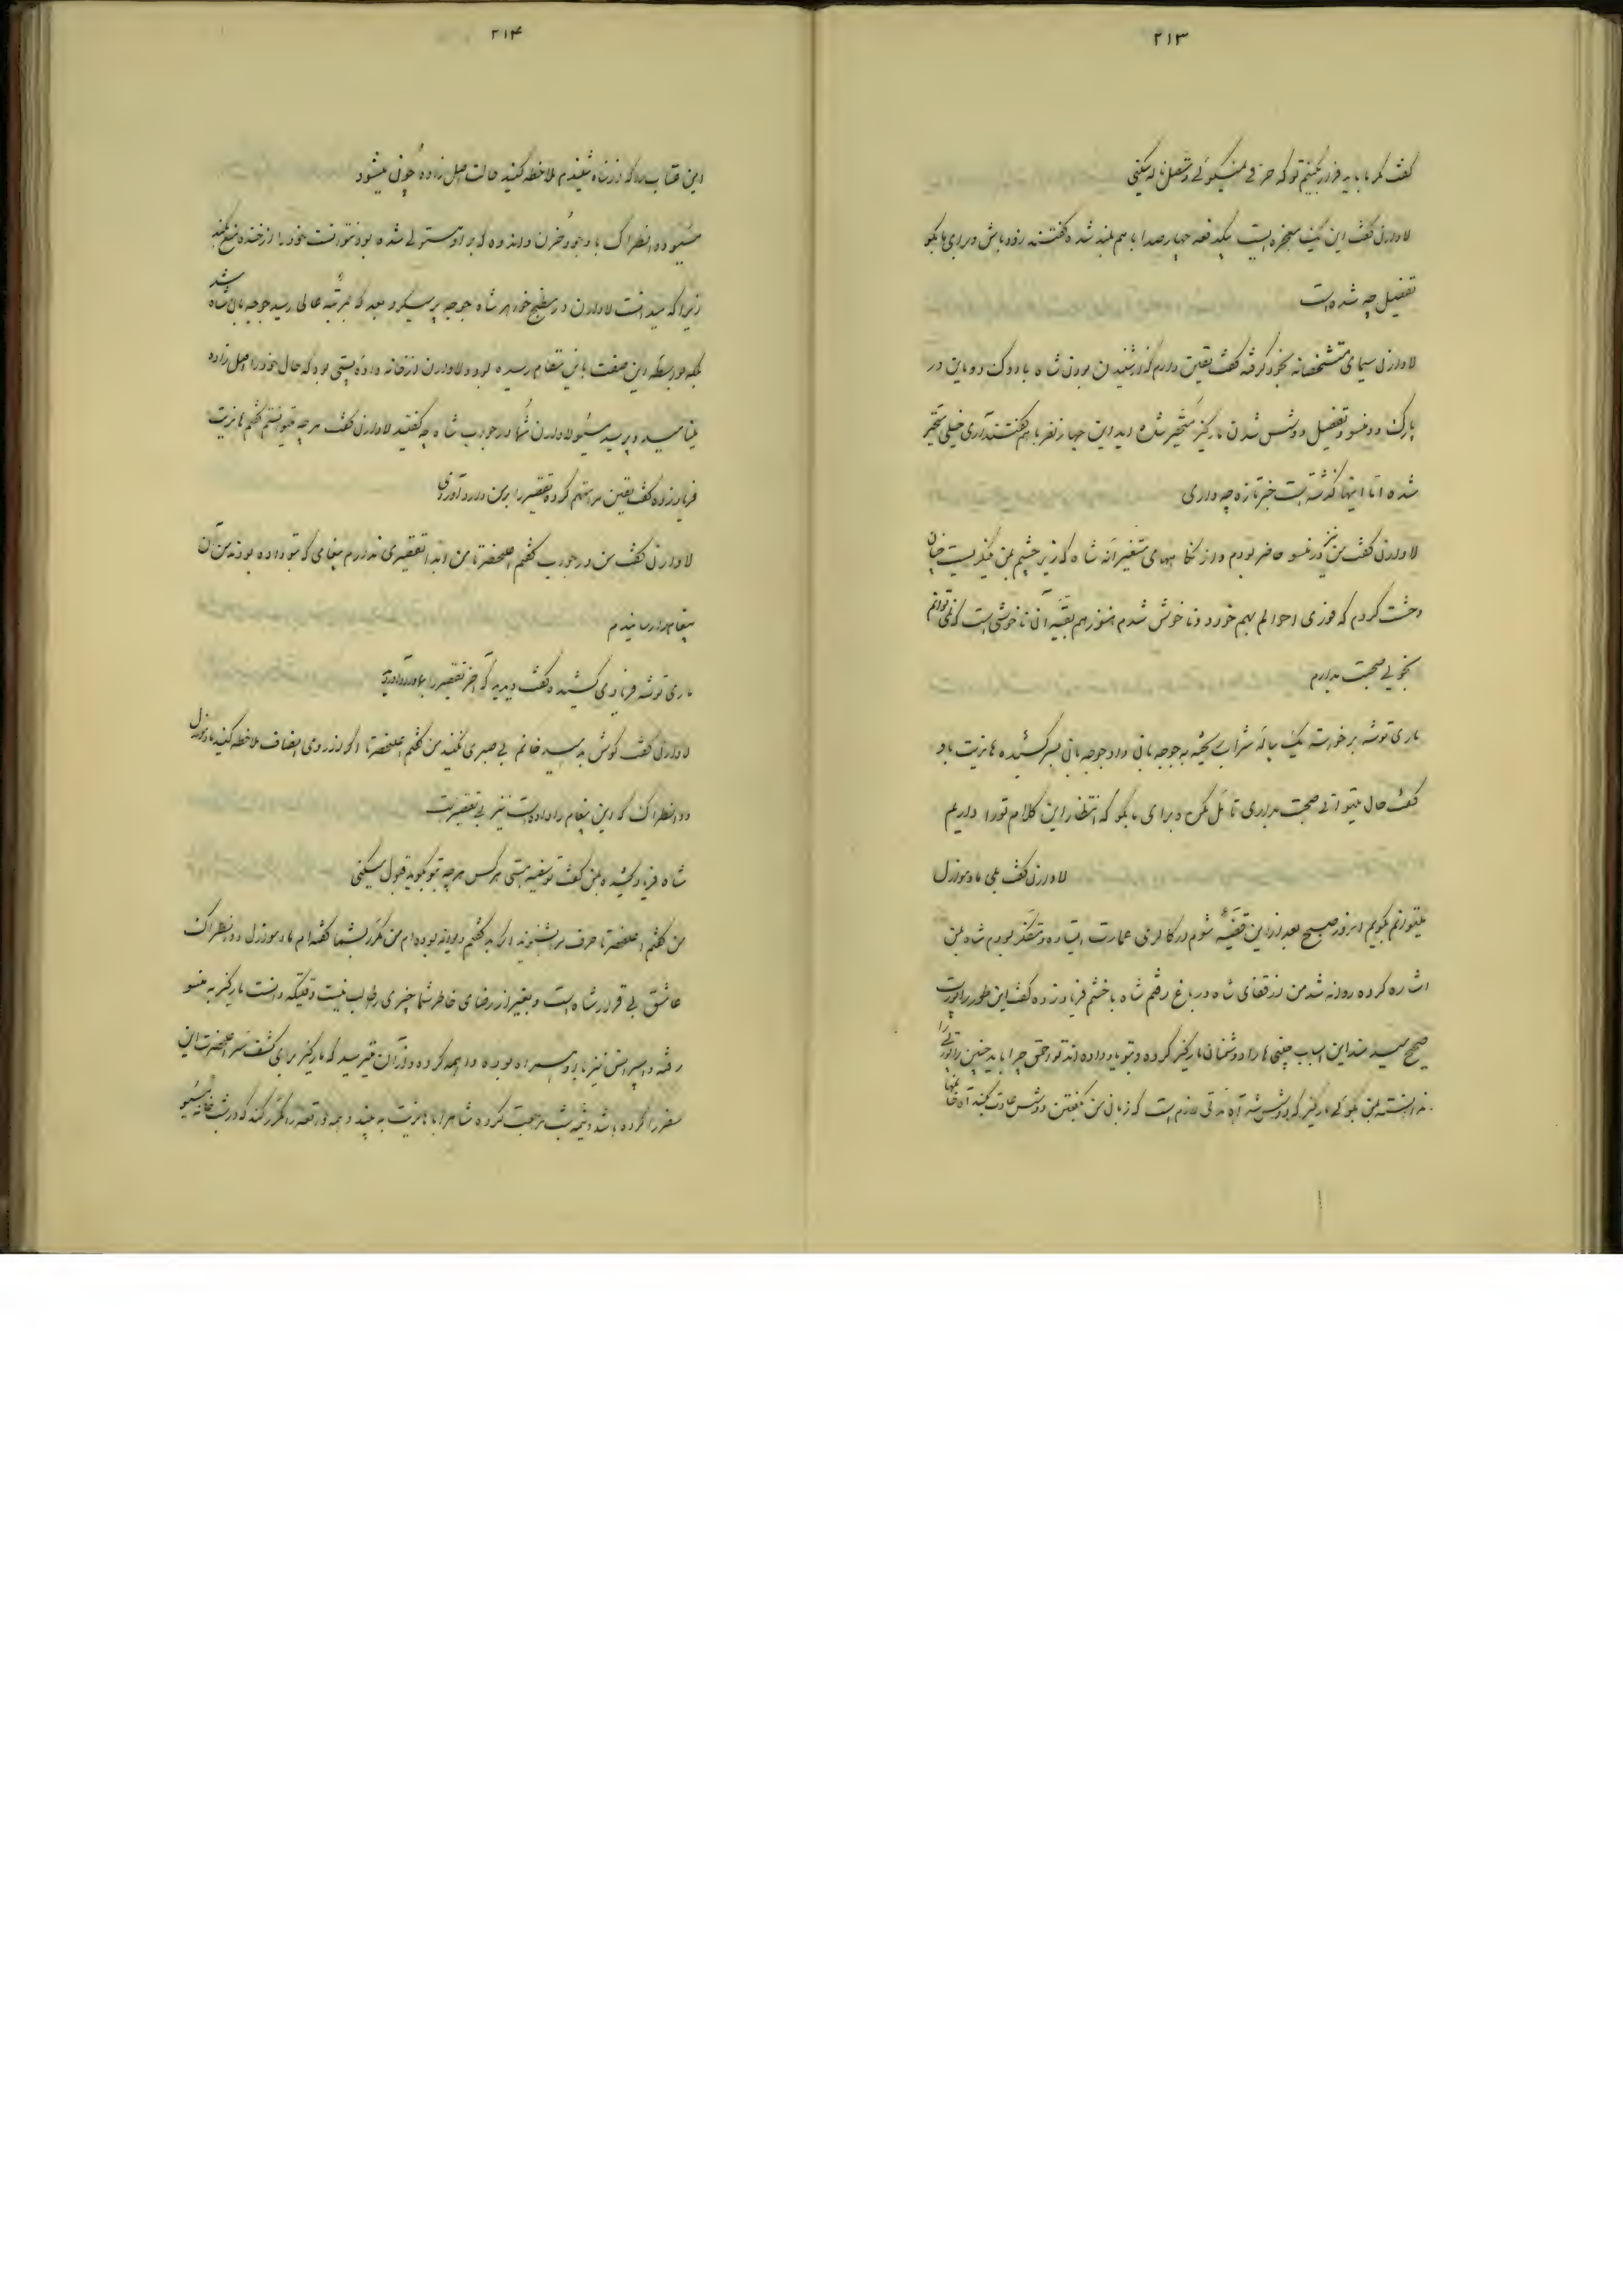 ۲۱۳
گفت مگر ما باید فرار بکنیم تو که حرفی نمیگوئی و تعقل نمیکنی
لاوارن گفت این یک معجزه‌ایست یکدفعه چهار صدا با هم بلند شده گفتند زود باش و برای ما بگو
تفصیل چه شده است
لاوارن سیمای متشخصانه بخود گرفته گفت یقین دارم که از شنیدن بودن شاه با دوک دو ماین در
پارک دو منسو و تفصیل دوشس شدن مارکیز متحیر شده اید این چهار نفر با هم گفتند آری خیلی متحیر
شده اما اینها گذشته است خبر تازه چه داری
لاوارن گفت من نیز در منسو حاضر بودم و از نگاههای متغیرانه شاه که زیر چشم بمن مینگریست چنان
وحشت کردم که فوری احوالم بهم خورد و ناخوش شدم هنوز هم بقیه آن ناخوشی است که نمیتوانم
بخوبی صحبت بدارم
ماری توشه برخواسته یک پیاله شراب ریخته به جوجه بانی داد جوجه بانی بسر کشیده هانریت باو
گفت حال میتوانی صحبت بداری تأمل مکن و برای ما بگو که انتظار این کلام تو را داریم
لاوارن گفت بلی مادموازل
میتوانم بگویم امروز صبح بعد از این قضیه شوم در کالری عمارت ایستاده و متفکر بودم شاه بمن
اشاره کرده روانه شد من از قفای شاه در باغ رفتم شاه با خشم فریاد زده گفت این طور راپورت
صحیح میدهند این اسباب چینی ها را دوشمنان مارکیز کرده و بتو یاد داده اند تو احمق چرا باید چنین راپورتی را
ندانسته بمن بگوئی مارکیز که دوشس شد آه مدتی لازم است که زبان من بگفتن دوشس عادت کند آه خانمها
۲۱۴
این عتاب را که از شاه شنیدم ملاحظه کنید حالت اصیل زاده چون میشود
مسیو دانطراک با وجود حزن و اندوه که بر او مستولی شده بود نتوانست خود را از خنده منع کند
زیرا که میدانست لاوارن در مطبخ خواهر شاه جوجه پر میکرد و بعد که بمرتبه عالی رسید جوجه بان شاه شد
بلکه بواسطه این صفت باین مقام رسیده بود و لاوارن از خانواده پستی بود که حال خود را اصیل زاده
مینامید و پرسید مسیو لاوارن شما در جواب شاه چه گفتید لاوارن گفت هر چه میتوانستم گفتم هانریت
فریاد زده گفت یقین مرا متهم کرده تقصیر را بمن وارد آوردی
لاوارن گفت من در جواب گفتم اعلیحضرتا من ابدا تقصیری ندارم پیغامی که بتو داده بودند من آن
پیغام را رسانیدم
ماری توشه فریادی کشید و گفت دیدید که آخر تقصیر را بما وارد آورد
لاوارن گفت گوش بدهید خانم بی صبری نکنید من گفتم اعلیحضرتا اگر از روی انصاف ملاحظه کنید مادموازل
دانطراک که این پیغام را داده است نیز بی تقصیر است
شاه فریاد کشیده بمن گفت تو سفیه هستی هر کس هر چه بتو بگوید قبول میکنی
من گفتم اعلیحضرتا حرف مرا بشنوید اگر بد گفتم دیوانه بوده ام من مکرر بشما گفته ام مادموازل دانطراک
عاشق بی قرار شاه است و بغیر از رضای خاطر شما چیزی را طالب نیست وقتیکه دانست مارکیز به منسو
رفته و پسرانش نیز با او همراه بوده واهمه کرده و از آن میترسید که مارکیز برای کشف سر اعلیحضرت این
سفر را کرده باشد و نیمه شب مراجعت کرده شما را با هانریت به بیند و همه واقعه را مکرر کند که در شب خانه مسیو